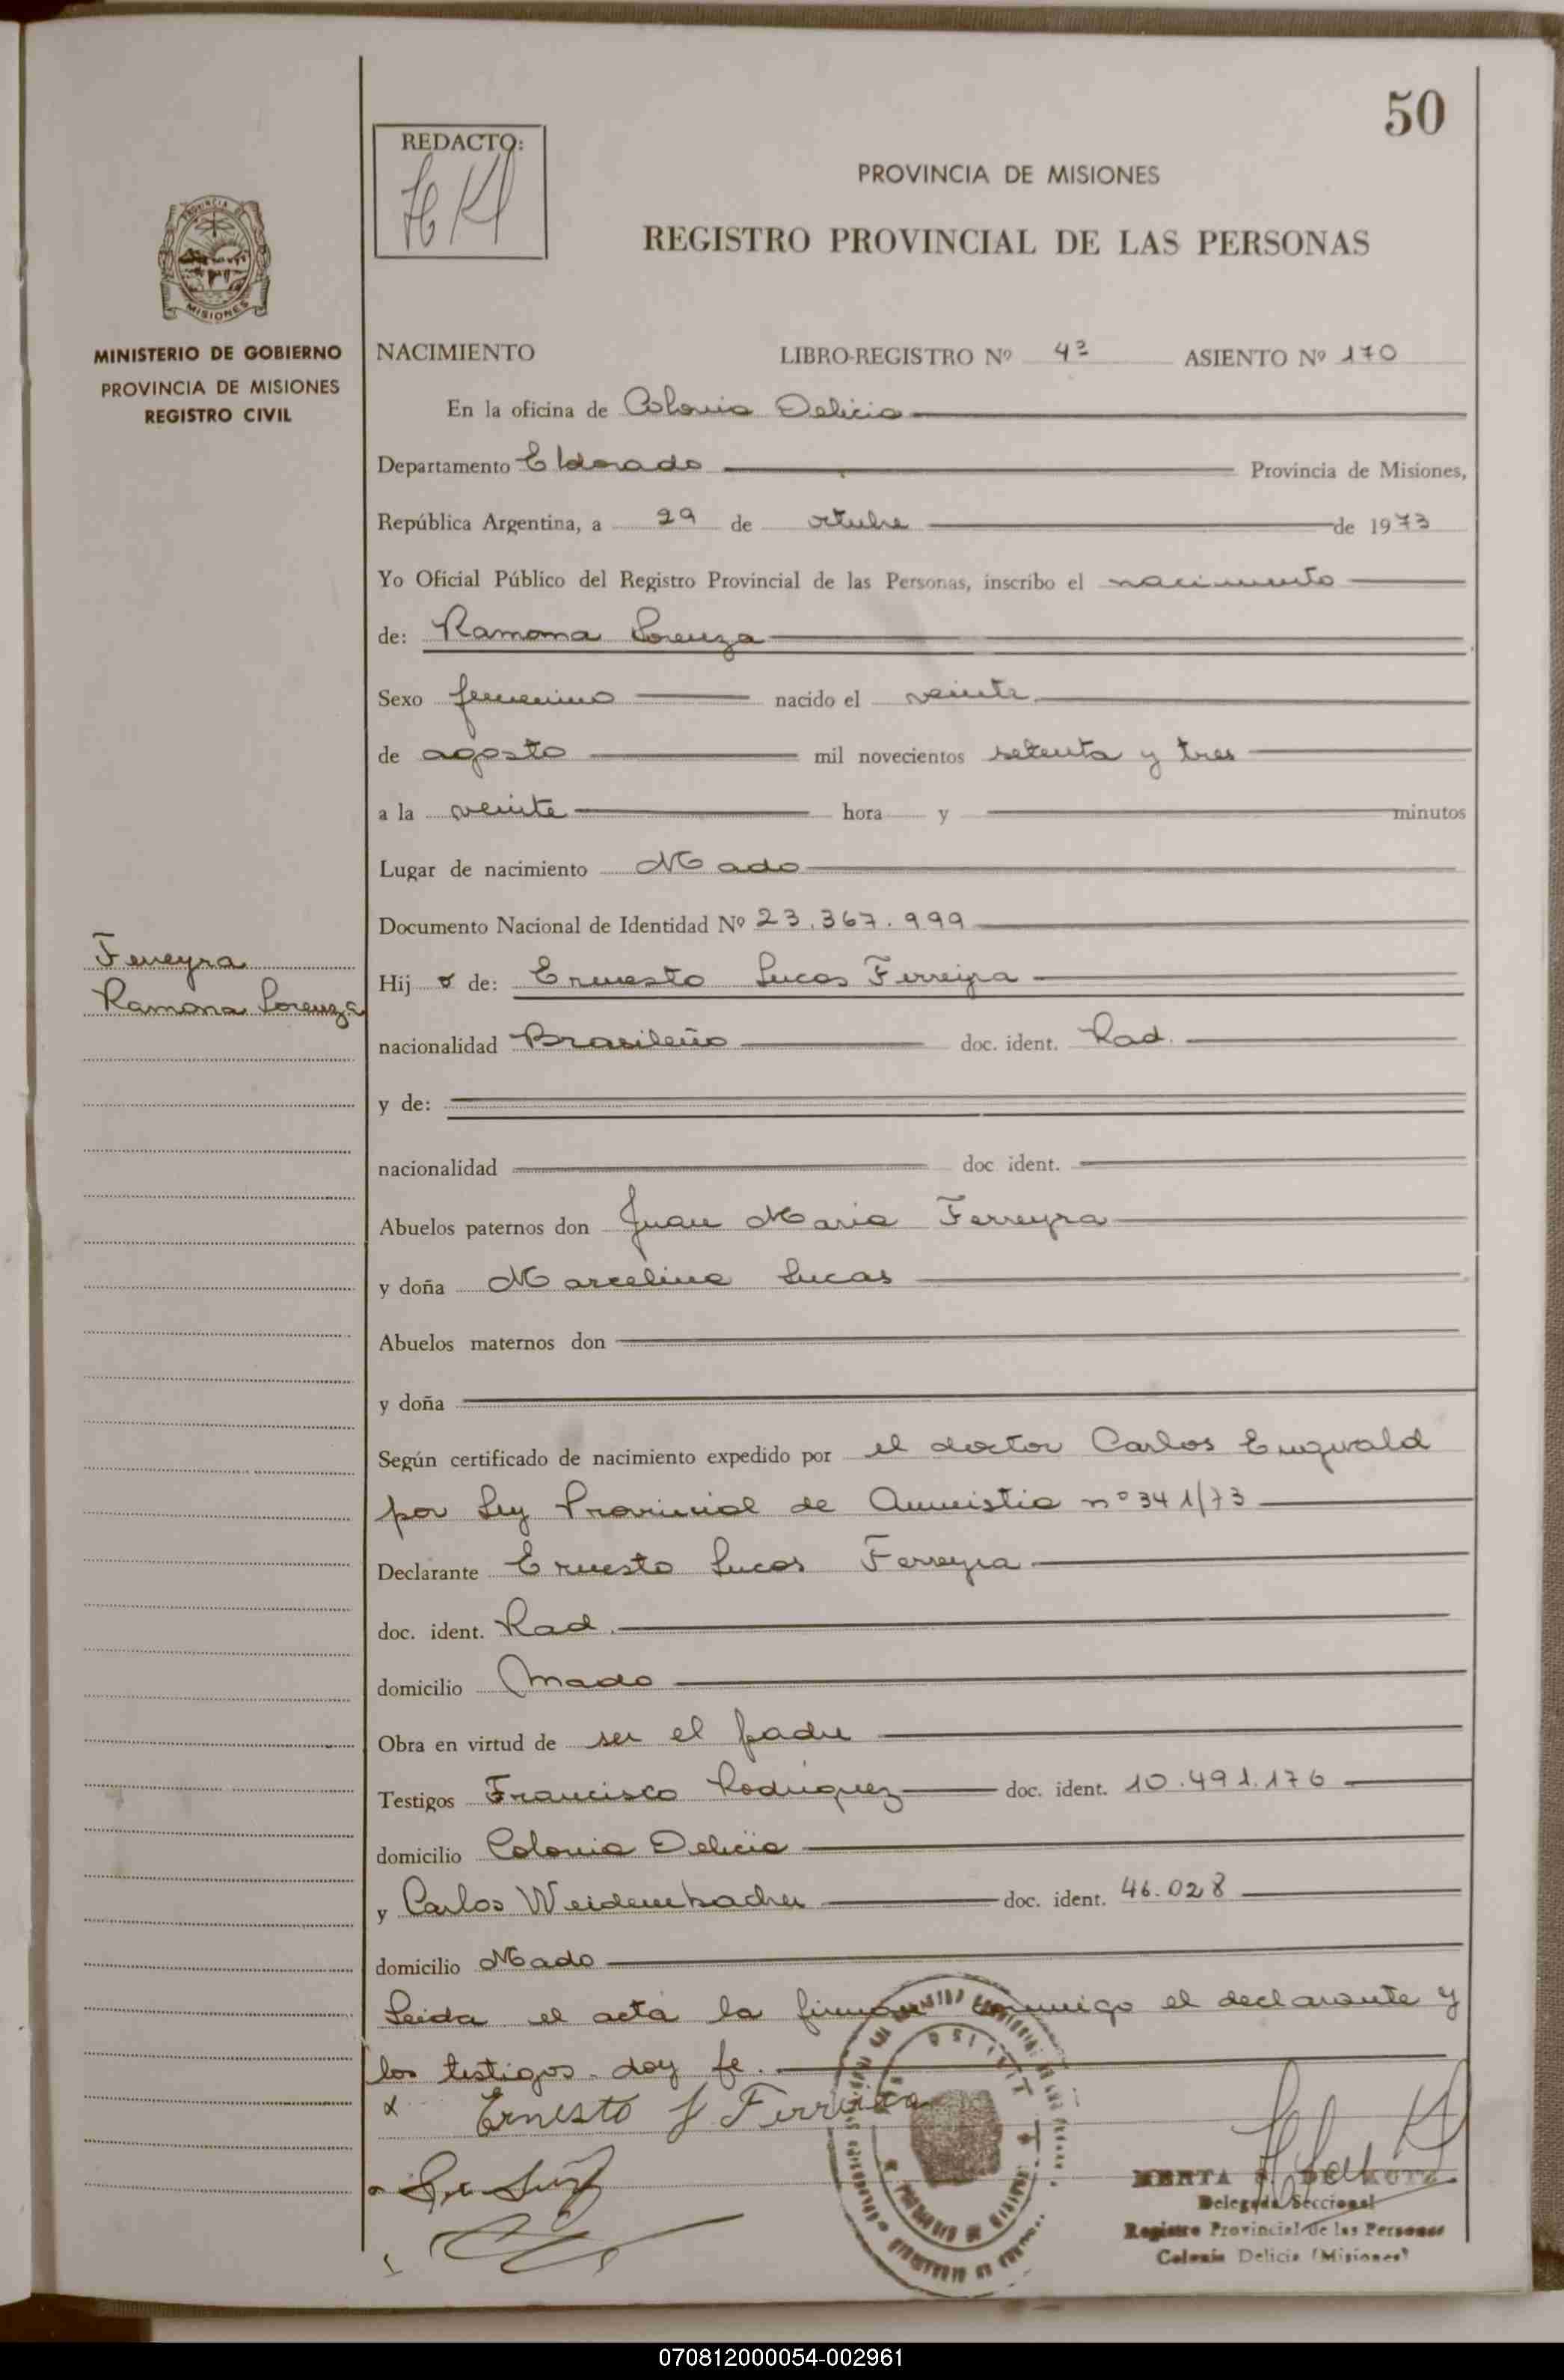 50
REDACTO:
HKl
PROVINCIA DE MISIONES
REGISTRO PROVINCIAL DE LAS PERSONAS
MISIONES
MINISTERIO DE GOBIERNO
PROVINCIA DE MISIONES
REGISTRO CIVIL
NACIMIENTO LIBRO-REGISTRO Nº 4º ASIENTO Nº 170
En la oficina de Colonia Delicia
Departamento Eldorado Provincia de Misiones,
República Argentina, a 29 de octubre de 1973
Yo Oficial Público del Registro Provincial de las Personas, inscribo el nacimiento
de: Ramona Lorenza
Sexo femenino nacido el veinte
de agosto mil novecientos setenta y tres
a la veinte hora y minutos
Lugar de nacimiento Mado
Documento Nacional de Identidad Nº 23.367.999
Ferreyra
Ramona Lorenza
Hij a de: Ernesto Lucas Ferreira
nacionalidad Brasileño doc. ident. Rad.
y de:
nacionalidad doc. ident.
Abuelos paternos don Juan Maria Ferreyra
y doña Marcelina Lucas
Abuelos maternos don
y doña
Según certificado de nacimiento expedido por el doctor Carlos Enqvald
por Ley Provincial de Amnistia nº 341/73
Declarante Ernesto Lucas Ferreyra
doc. ident. Rad.
domicilio Mado
Obra en virtud de ser el padre
Testigos Francisco Rodriguez doc. ident. 10.491.176
domicilio Colonia Delicia
y Carlos Weidembacher doc. ident. 46.028
domicilio Mado
Leida el acta la firman conmigo el declarante y
los testigos. doy fe.
x Ernesto L Ferreira
HERTA
Delegada Seccional
Registro Provincial de las Personas
Colonia Delicia (Misiones)
070812000054-002961